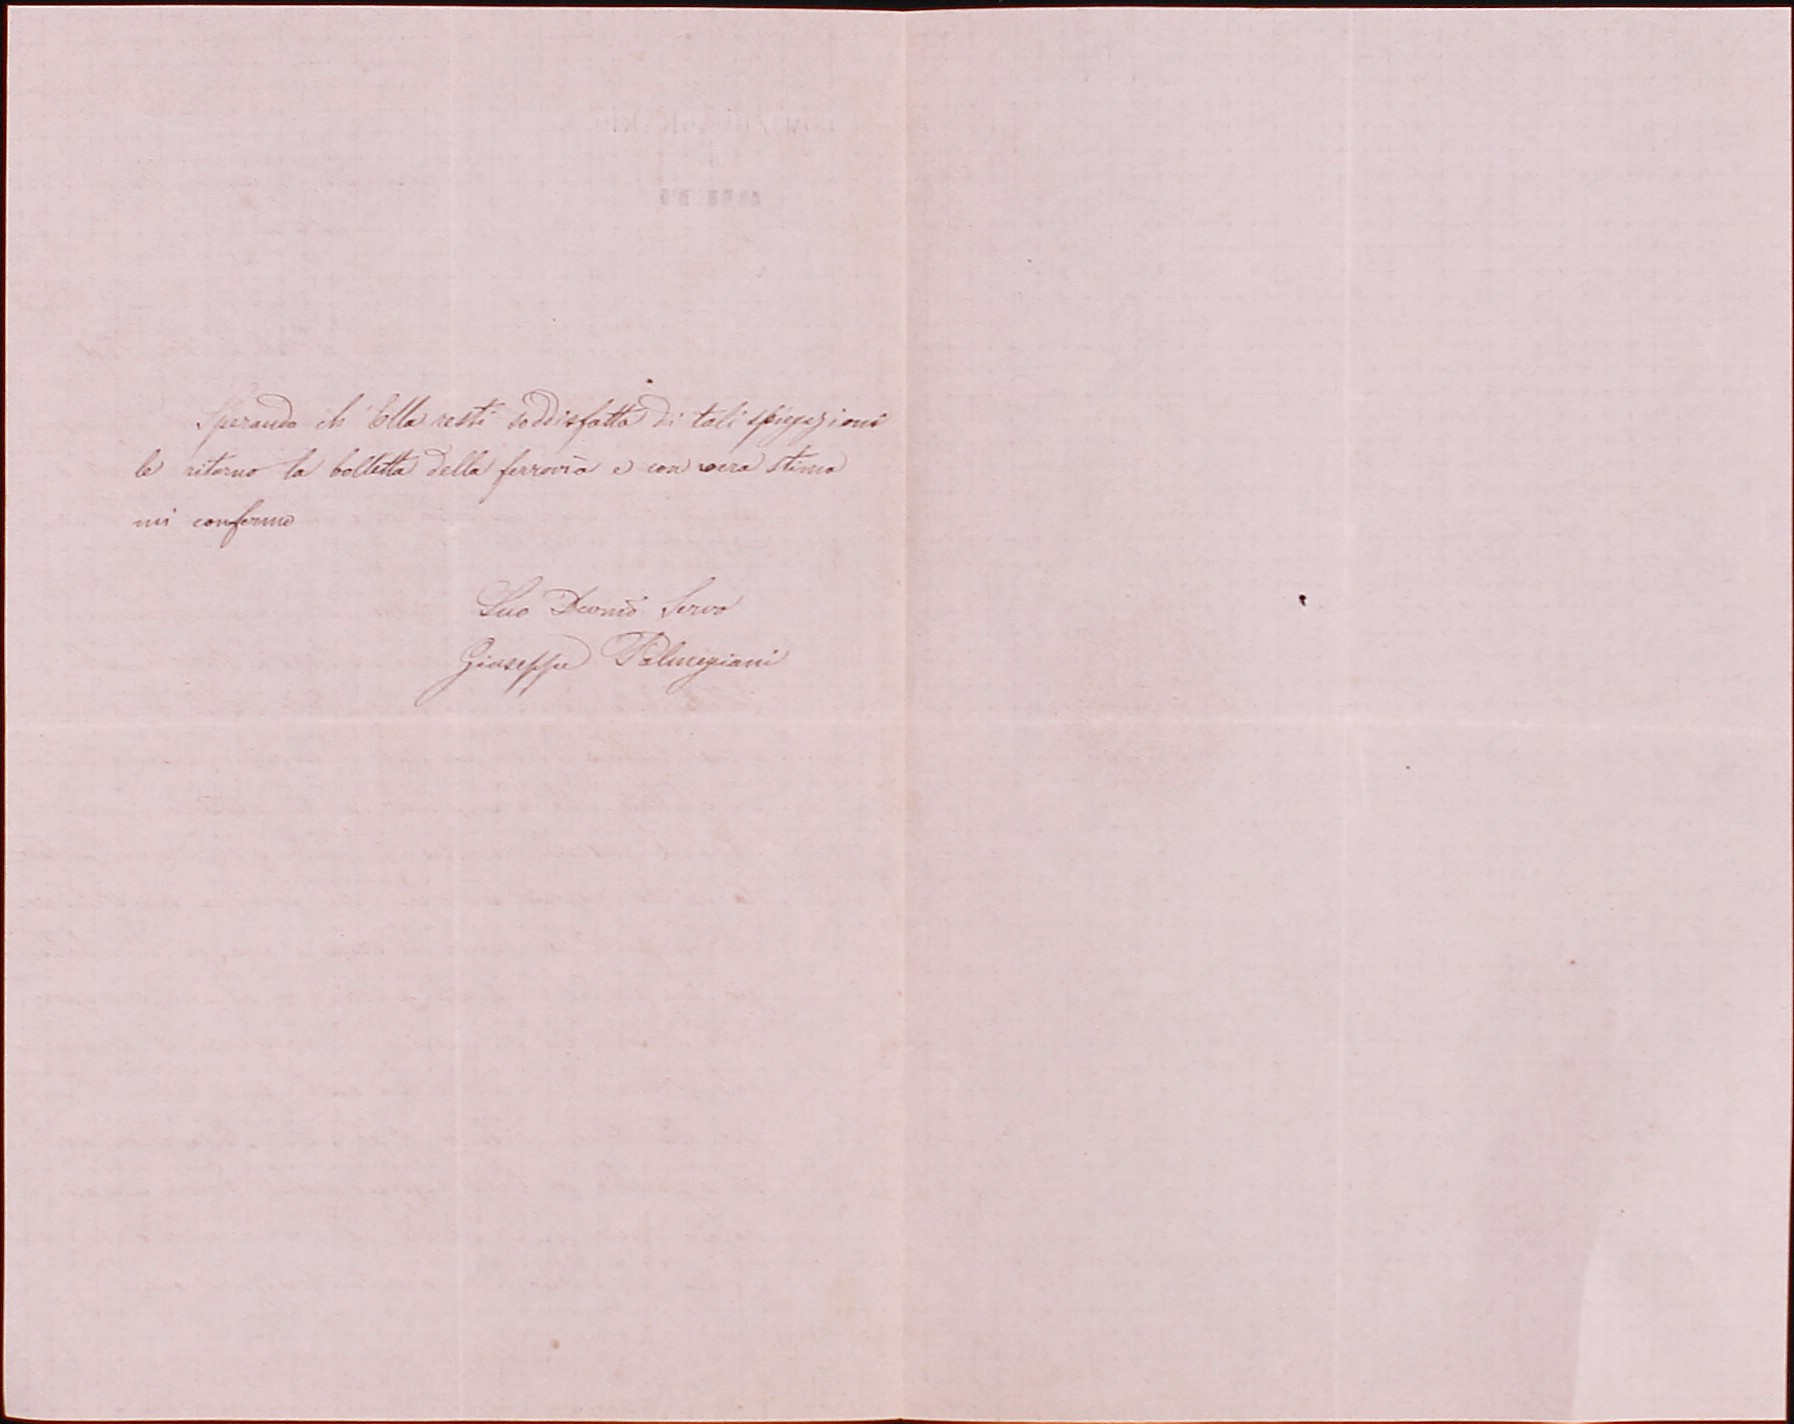 Sperando ch'Ella resti soddisfatta di tali spiegazioni
le ritorno la bolletta della ferrovia e con vera stima
mi confermo
Suo Devmo Servo
Giuseppe Palmegiani